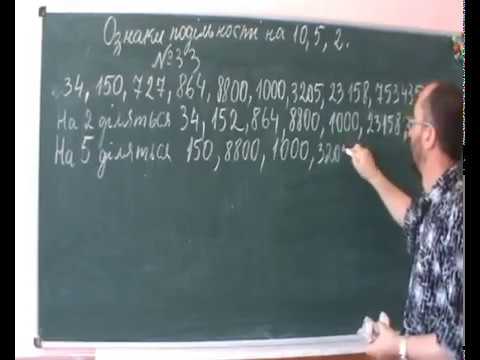 Ознаки подільності на 10, 5, 2.
№33
34, 150, 727, 864, 8800, 1000, 3205, 23158, 753435
На 2 діляться 34, 152, 864, 8800, 1000, 23158,
На 5 діляться 150, 8800, 1000, 320